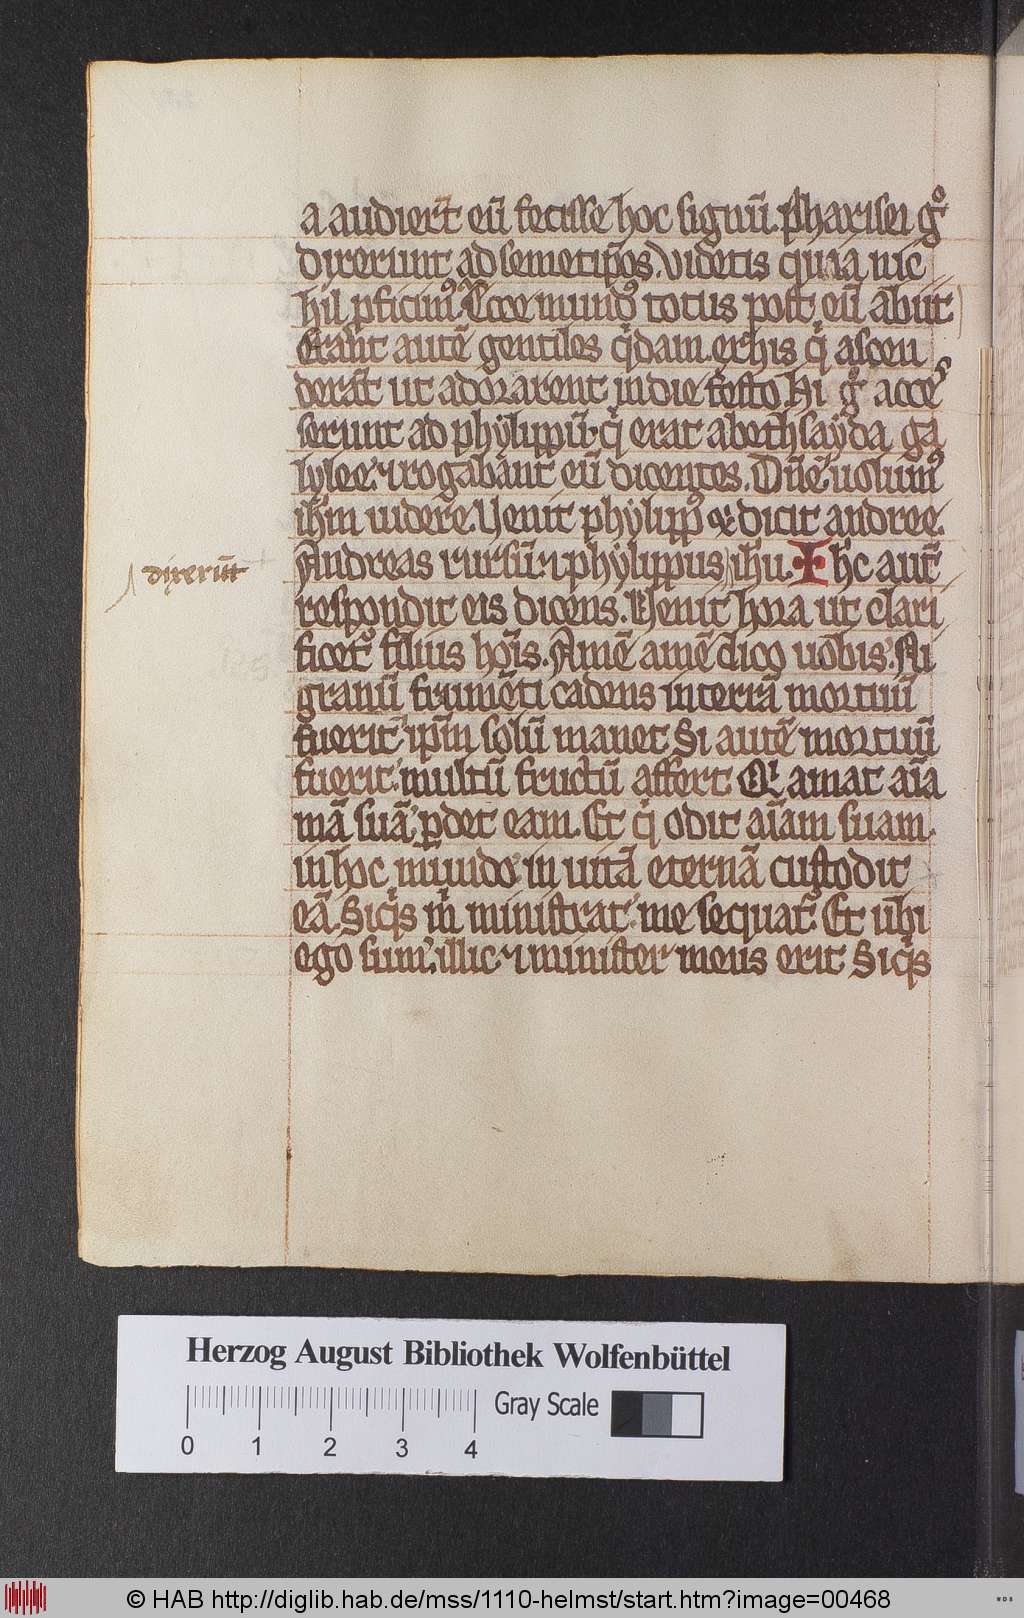 a audier̄t eū fecisse hoc signū. pharisei gͦ
dixerunt ad semetip̄os. Videtis quia nic
hil ꝓficimꝰ. Ecce mundꝰ totus post eū abiit
Erant autē gentiles qͥdam. ex his qͥ ascen
derāt ut adorarent in die festo. Hi gͦ acces
serunt ad phylippū. qͥ erat a bethsayda ga
lylee. ⁊ rogabant eū dicentes. Dn̄e uolumꝰ
ih̄m uidere. Venit phylippꝰ ⁊ dicit andree.
direxerūt
Andreas rursū ⁊ phylippus ih̄u. Ih̄c aut̄
respondit eis dicens. Venit hora ut clari
ficet᷑ filius hoīs. Amē amē dico uobis. Ni
granū frumēti cadens in terrā mortuū
fuerit. ip̄m solū manet. Si autē mortuū
fuerit. multū fructū affert. Qi amat aīa
mā suā. ꝑdet eam. Et qͥ odit aīam suam
in hoc mundo. in uitā eternā custodit
eā. Siqͥs mͥ ministrat. me sequat᷑. Et ubi
ego sum. illic ⁊ minister meus erit. Siqͥs
Herzog August Bibliothek Wolfenbüttel
Gray Scale
0 1 2 3 4
© HAB http://diglib.hab.de/mss/1110-helmst/start.htm?image=00468